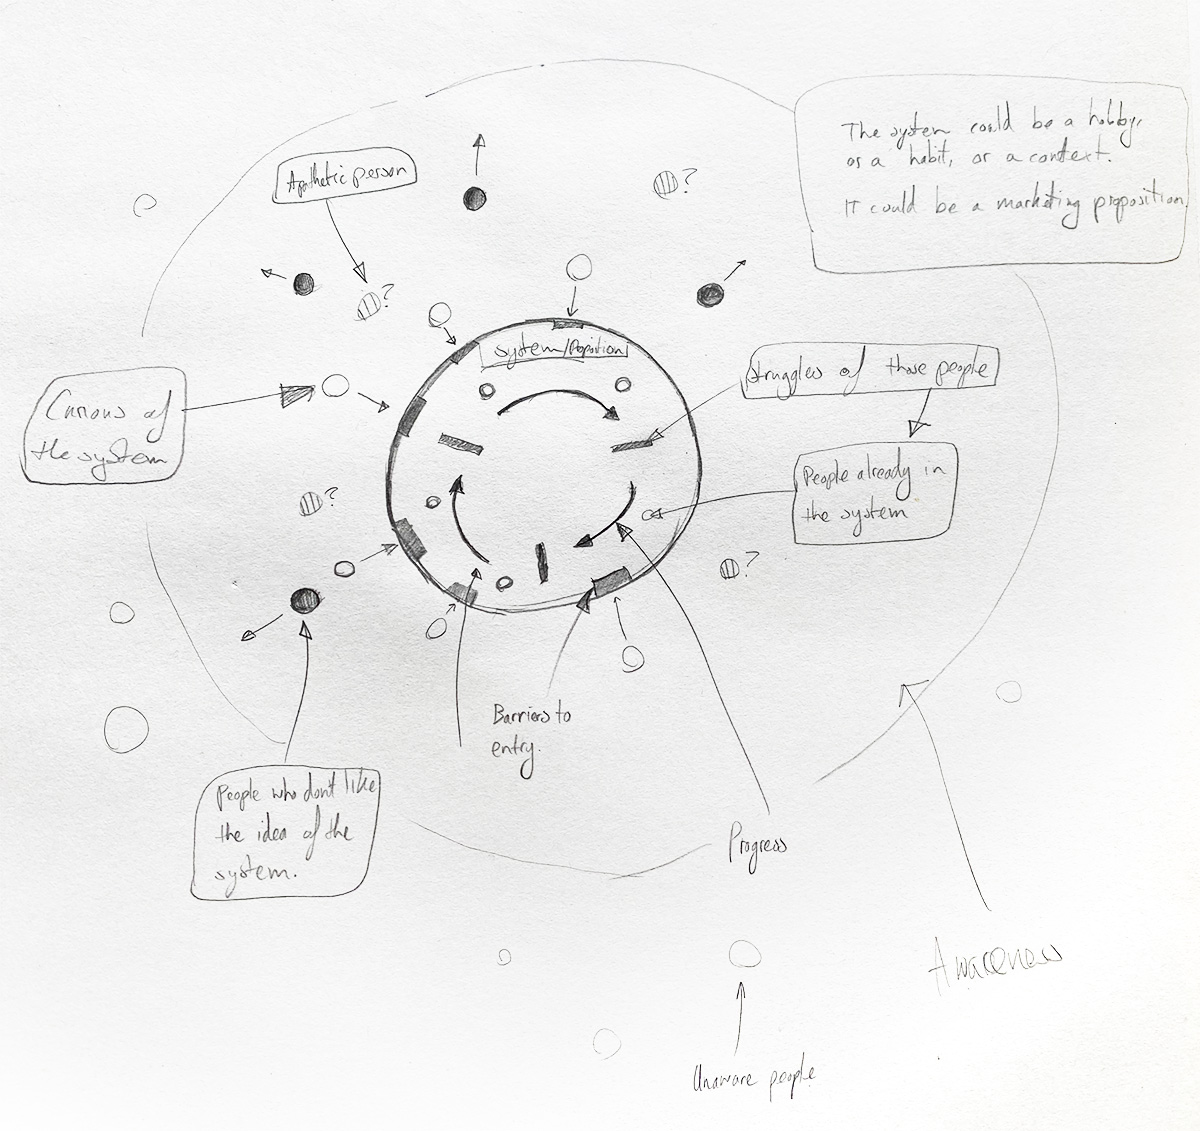 The system could be a hobby,
or a habit, or a context.
It could be a marketing proposition
Apathetic person
?
?
?
System/Proposition
Struggles of those people
Curious of
the system
People already in
the system
?
?
Barriers to
entry.
People who dont like
the idea of the
system.
Progress
Awareness
Unaware people